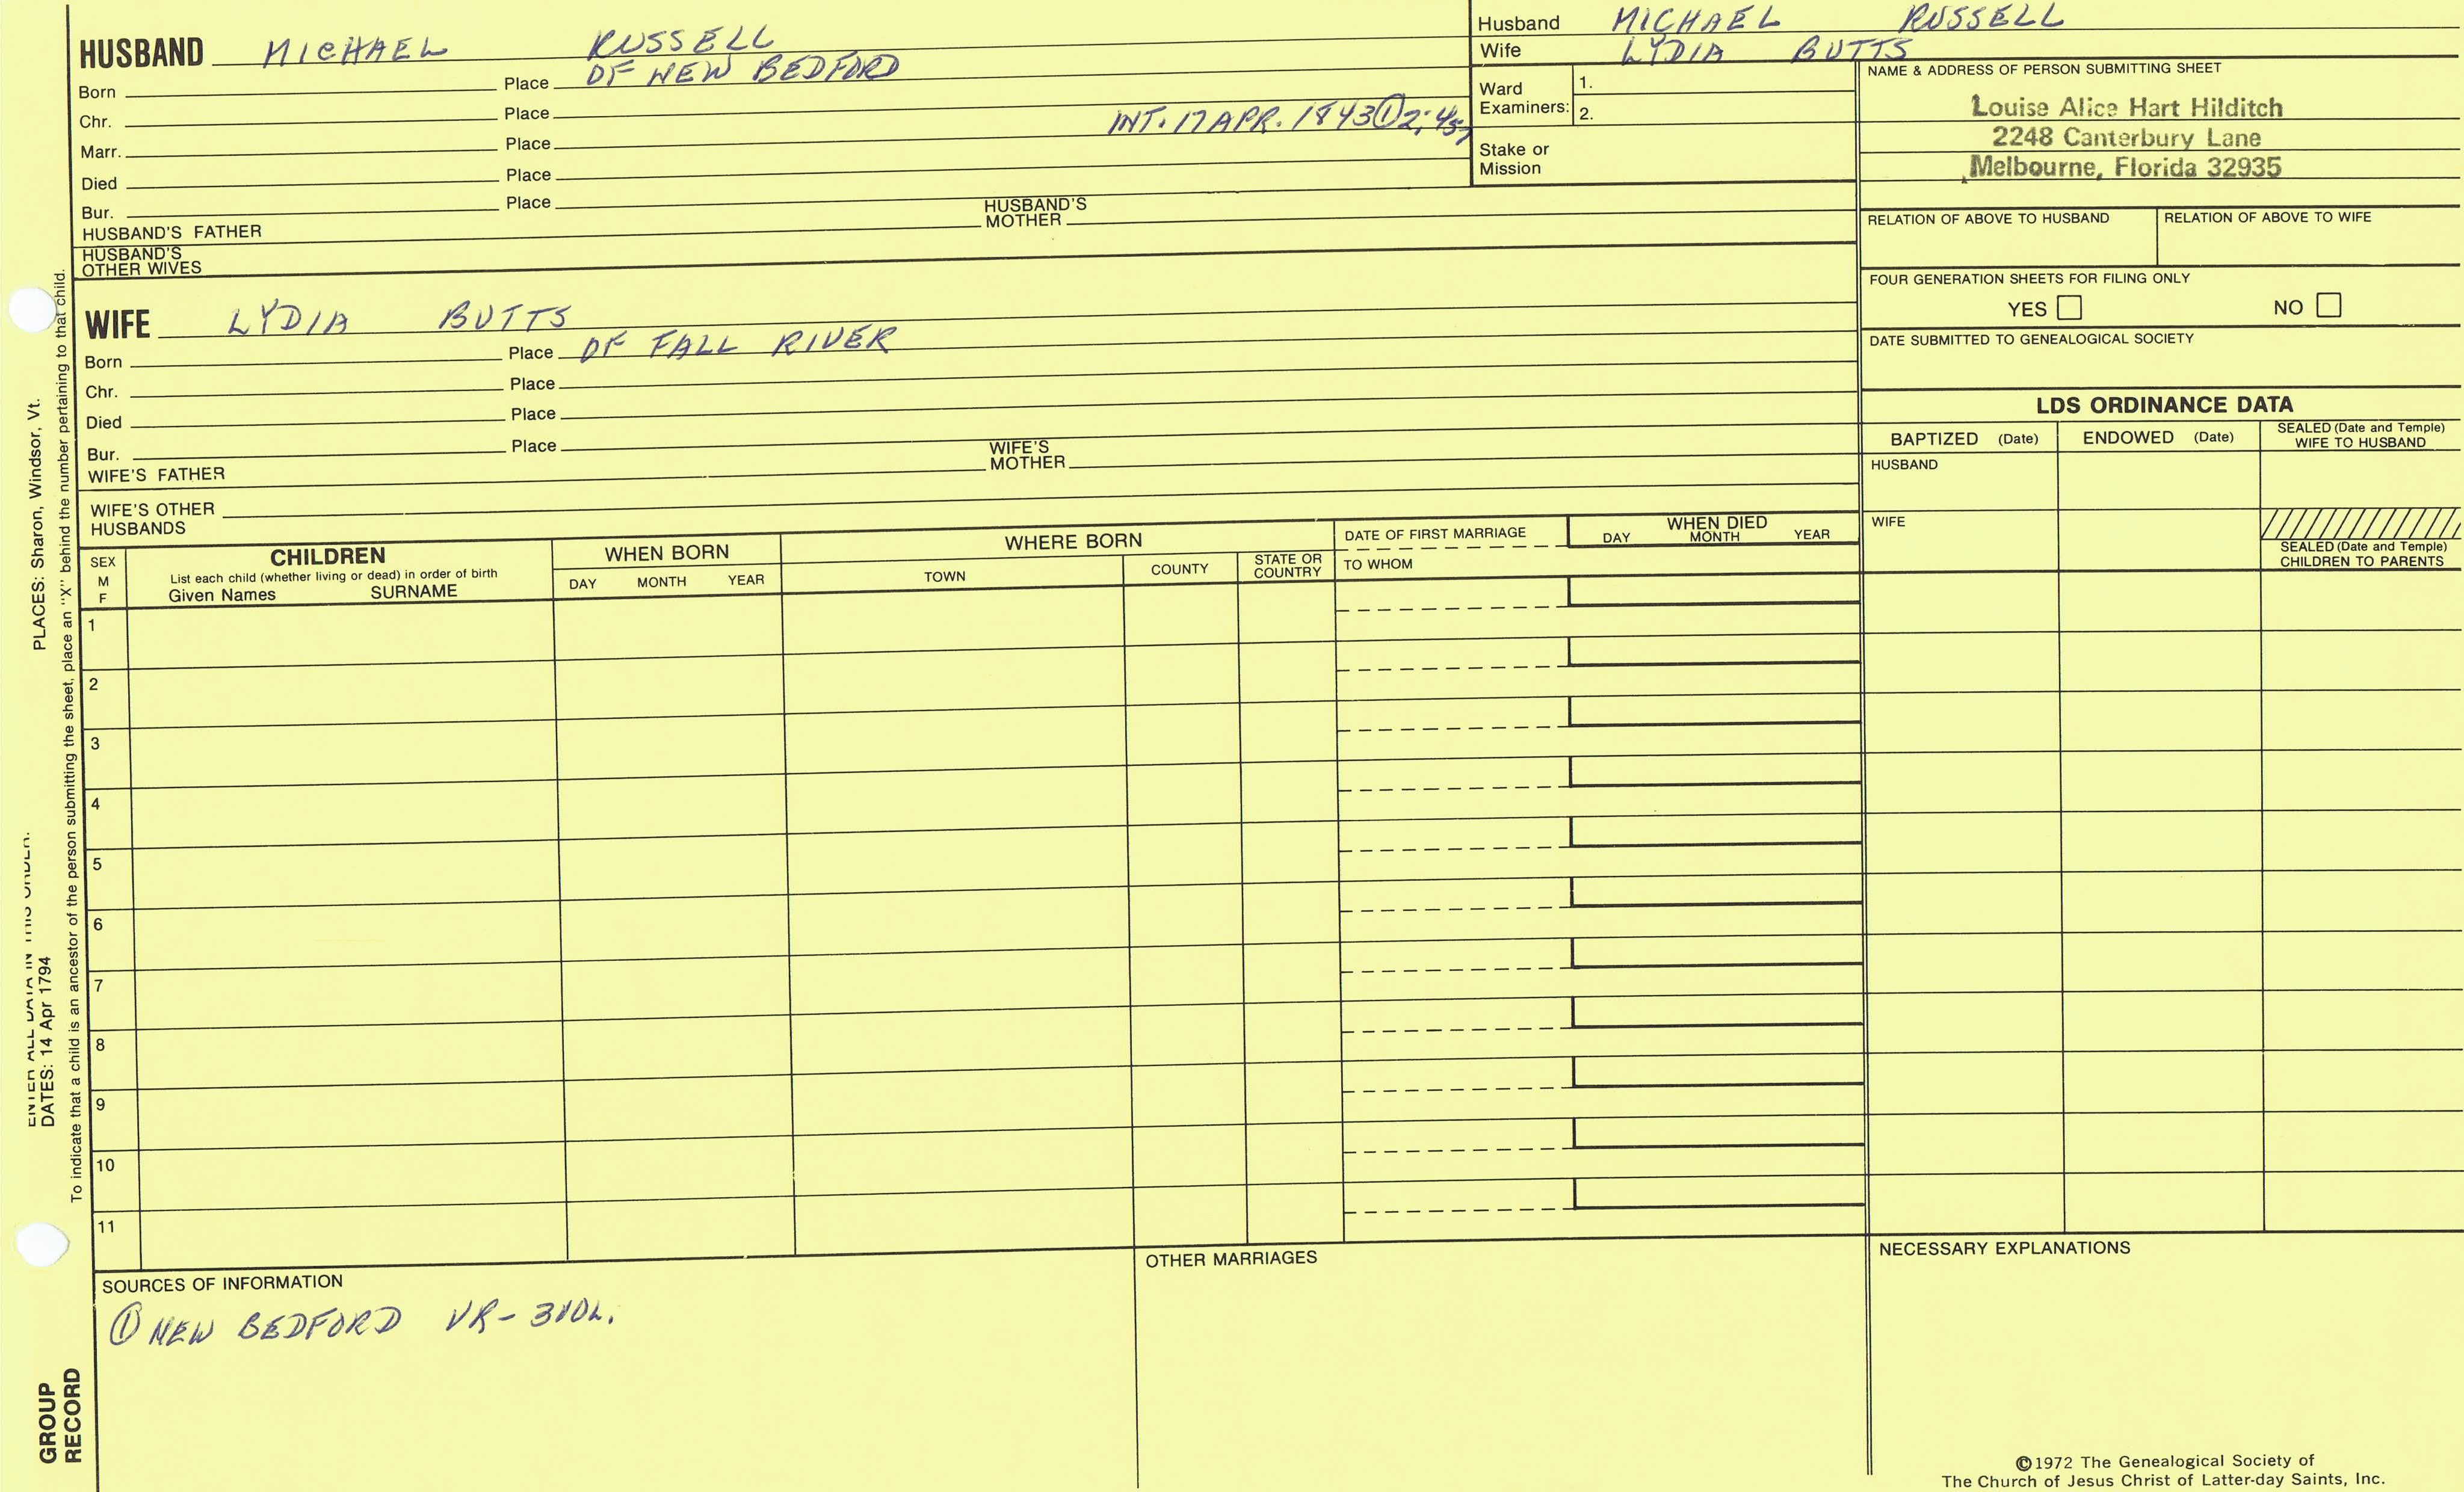 HUSBAND MICHAEL RUSSELL
Born Place OF NEW BEDFORD
Chr. Place
Marr. Place INT. 17 APR. 1843 ① 2:45,
Died Place
Bur. Place
HUSBAND'S FATHER HUSBAND'S MOTHER
HUSBAND'S OTHER WIVES
WIFE LYDIA BUTTS
Born Place OF FALL RIVER
Chr. Place
Died Place
Bur. Place
WIFE'S FATHER WIFE'S MOTHER
WIFE'S OTHER HUSBANDS
Husband MICHAEL RUSSELL
Wife LYDIA BUTTS
Ward Examiners: 1.
2.
Stake or Mission
NAME & ADDRESS OF PERSON SUBMITTING SHEET
Louise Alice Hart Hilditch
2248 Canterbury Lane
Melbourne, Florida 32935
RELATION OF ABOVE TO HUSBAND RELATION OF ABOVE TO WIFE
FOUR GENERATION SHEETS FOR FILING ONLY
YES NO
DATE SUBMITTED TO GENEALOGICAL SOCIETY
LDS ORDINANCE DATA
BAPTIZED (Date) ENDOWED (Date) SEALED (Date and Temple) WIFE TO HUSBAND
HUSBAND
WIFE
SEALED (Date and Temple) CHILDREN TO PARENTS
SEX M F
CHILDREN
List each child (whether living or dead) in order of birth
Given Names SURNAME
WHEN BORN
DAY MONTH YEAR
WHERE BORN
TOWN COUNTY STATE OR COUNTRY
DATE OF FIRST MARRIAGE
TO WHOM
WHEN DIED
DAY MONTH YEAR
1
2
3
4
5
6
7
8
9
10
11
SOURCES OF INFORMATION
① NEW BEDFORD VR-
OTHER MARRIAGES
NECESSARY EXPLANATIONS
©1972 The Genealogical Society of
The Church of Jesus Christ of Latter-day Saints, Inc.
ENTER ALL DATA IN THIS ORDER:
DATES: 14 Apr 1794 PLACES: Sharon, Windsor, Vt.
To indicate that a child is an ancestor of the person submitting the sheet, place an "X" behind the number pertaining to that child.
GROUP
RECORD